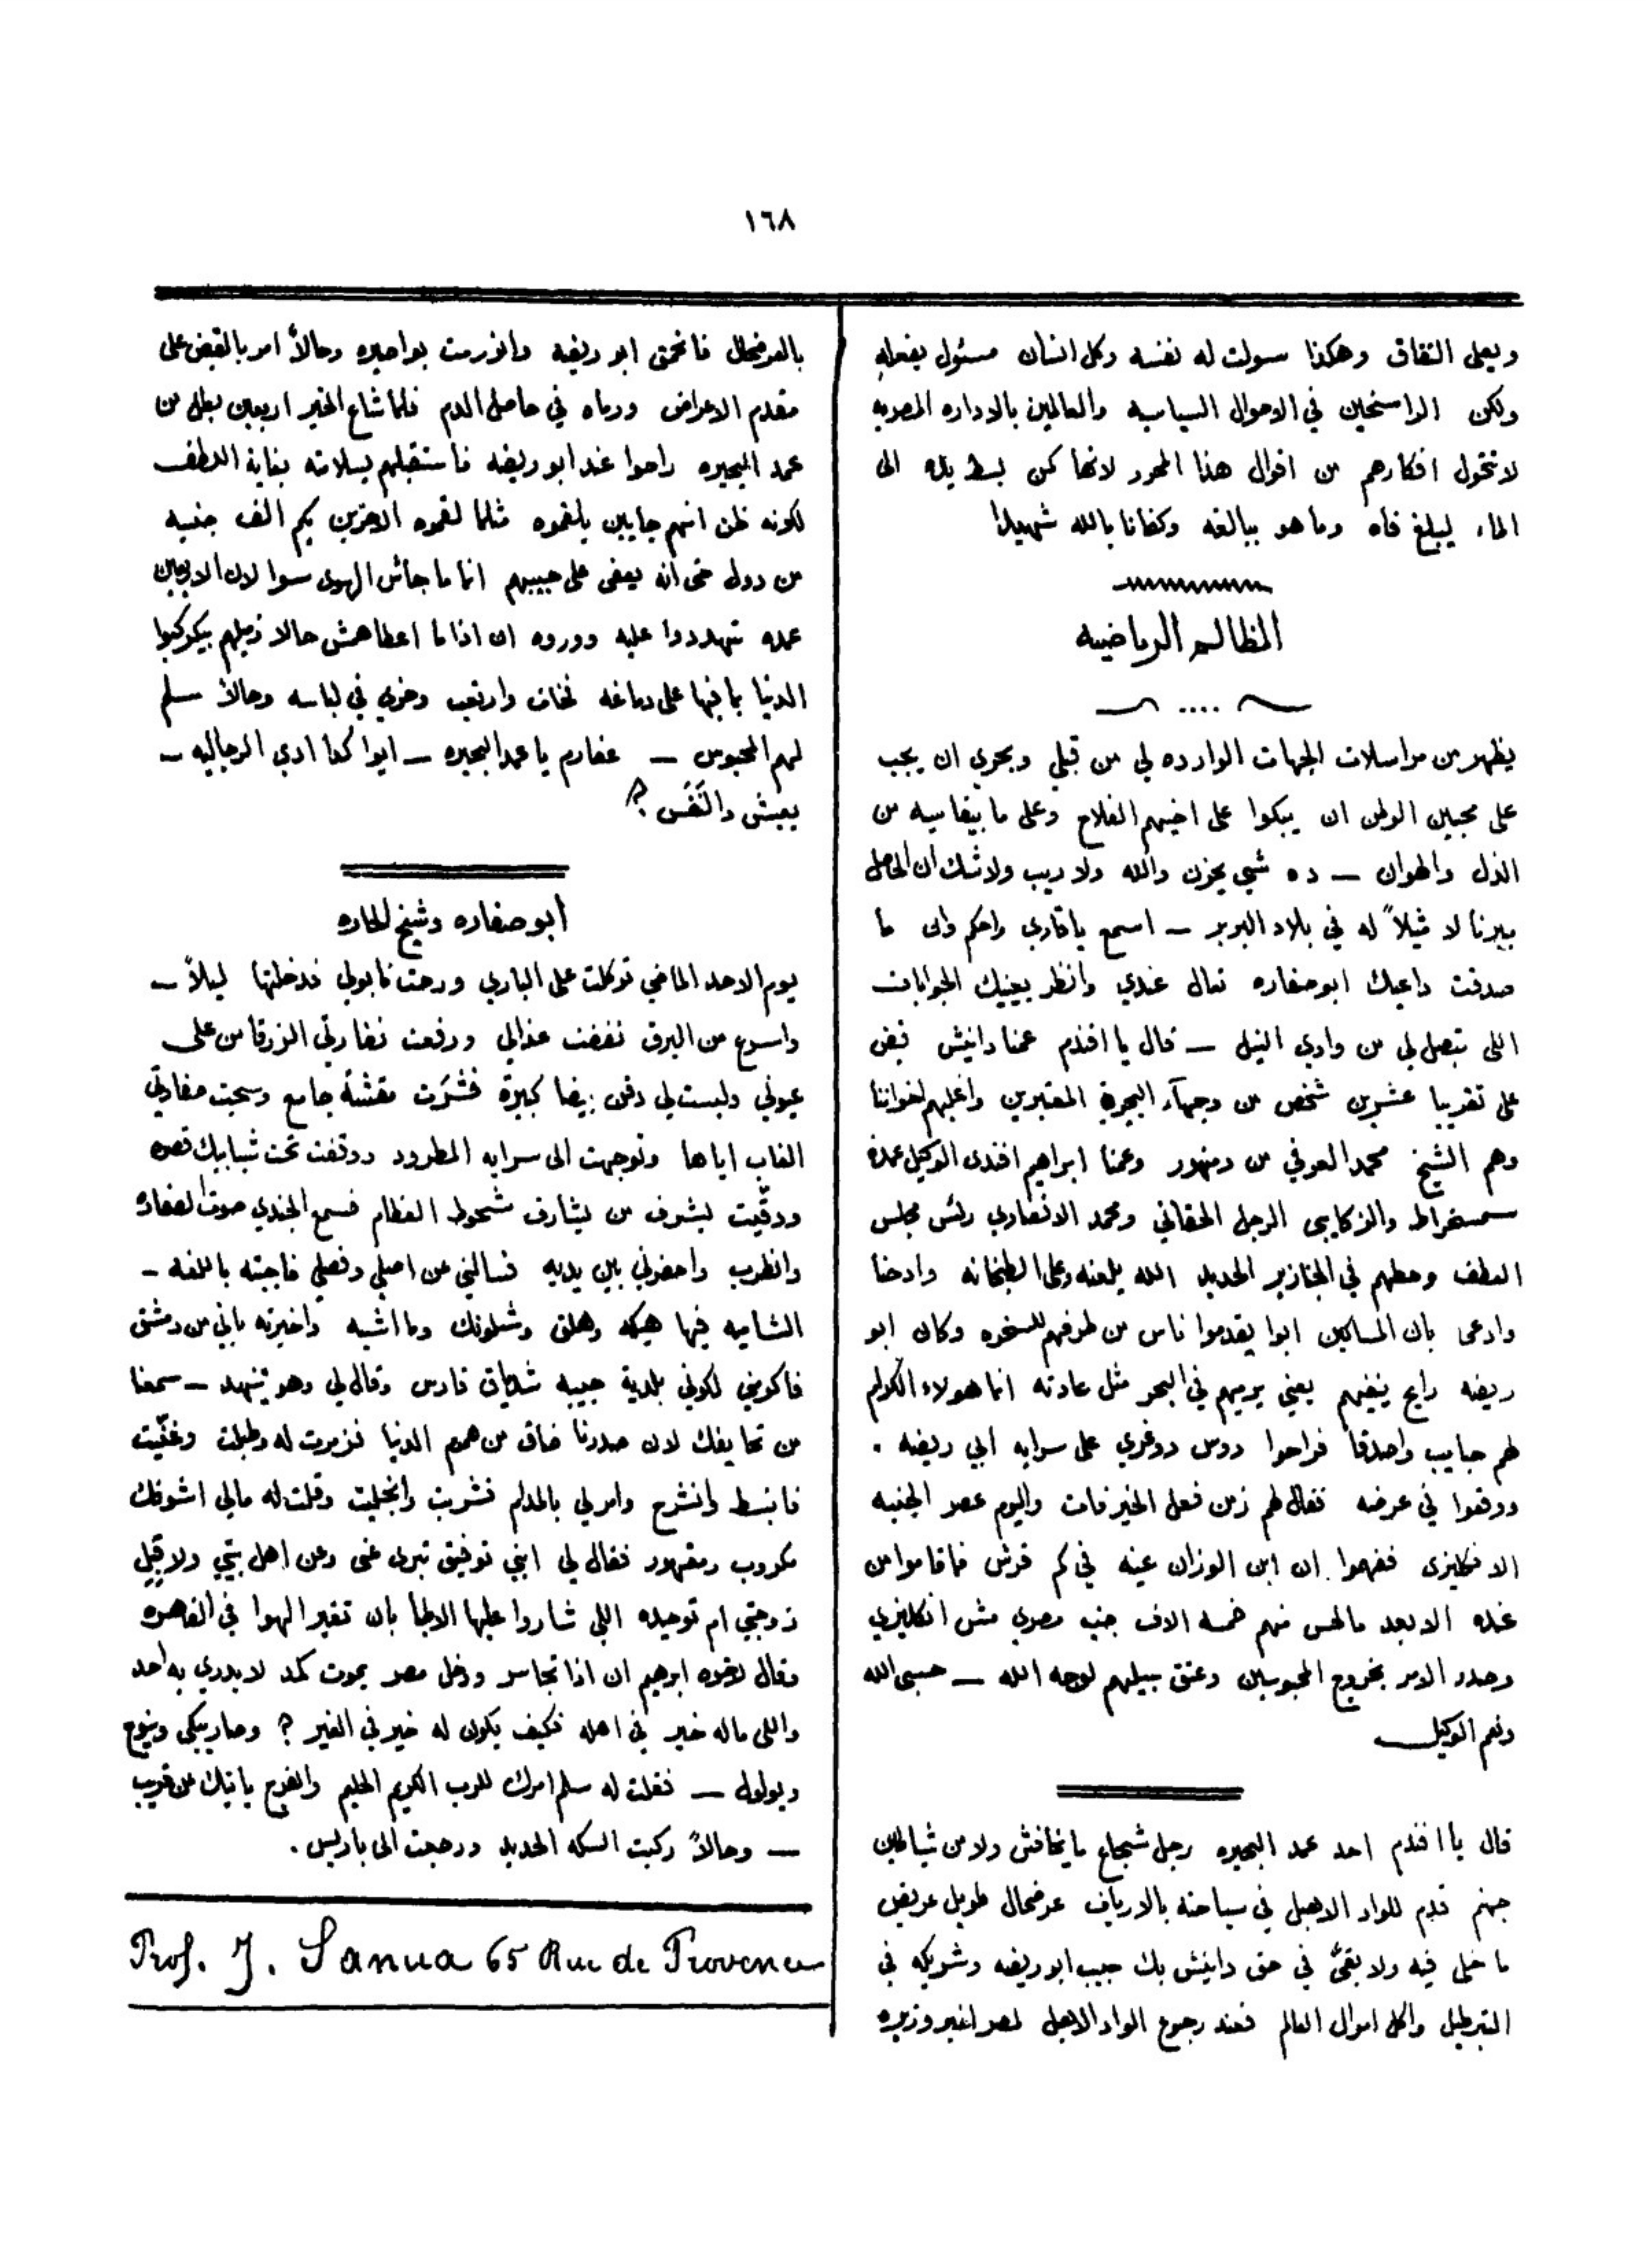 ١٦٨
ويعلى النفاق وهكذا سولت له نفسه وكل انسان مسئول بفعله
ولكن الراسخين في الاحوال السياسيه والعالمين بالاداره المصريه
لا تتحول افكارهم من اقوال هذا المحرر لانها كمن بسط يده الى
الماء ليبلغ فاه وما هو ببالغه وكفانا بالله شهيدا
المظالم الرياضيه
يظهر من مراسلات الجهات الوارده لي من قبلي وبحري ان يجب
على محبين الوطن ان يبكوا على اخيهم الفلاح وعلى ما بيقاسيه من
الذل والهوان — ده شي يحزن والله ولا ريب ولا شك ان الحاصل
ببرنا لا مثيلاً له في بلاد البربر — اسمع يا قاري واحكم وان ما
صدقت داعيك ابو صفاره تعال عندي وانظر بعينيك الجوابات
اللى بتصل لي من وادي النيل — قال يا افندم عمنا دانيش قبض
على تقريبا عشرين شخص من وجهآء البحيرة المعتبرين واغلبهم اخواننا
وهم الشيخ محمد العوفي من دمنهور وعمنا ابراهيم افندى الوكيل عمدة
سمخراط والزكايبى الرجل الحقاني ومحمد الانصاري رئس مجلس
العطف وحطهم في الجنازير الحديد الله يلعنه وعلى الطبخانه وادخنا
وادعى بان المساكين ابوا يقدموا ناس من طرفهم للسخره وكان ابو
ريضه رايح ينفيهم يعني يرميهم في البحر مثل عادته انما هولاء الكرام
لهم حبايب واصدقا فراحوا دوس دوغري على سرايه ابي ريضه .
ووقعوا في عرضه فقال لهم زمن فعل الخير فات واليوم عصر الجنيه
الانكليزى ففهموا ان ابن الوزان عينه في كم قرش فما قاموا من
عنده الا بعد ما لهس منهم خمسة الاف جنيه مصري مش انكليزي
وصدر الامر بخروج المحبوسين وعتق سبيلهم لوجه الله — حسبى الله
ونعم الوكيل
قال يا افندم احد عمد البحيره رجل شجاع ما يخافش ولا من شياطين
جهنم قدم للواد الاهبل في سياحته بالارياف عرضحال طويل عريض
ما خلى فيه ولا بقىّ في حق دانيش بك حبيب ابو ريضه وشريكه في
التبرطيل واكل اموال العالم فعند رجوع الواد الاهبل لمصر اخبر وزيره
بالعرضحال فانحمق ابو ريضه وانزرمت بواصيره وحالاً امر بالقبض على
مقدم الاعراض ورماه في حاصل الدم فلما شاع الخبر اربعين بطل من
عمد البحيره راحوا عند ابو ريضه فاستقبلهم بسلامته بغاية اللطف
لكونه ظن انهم جايين يلقموه مثلما لقموه الاخرين بكم الف جنيه
من دول حتى انه يعفى على حبيبهم انما ما جاش الهوى سوا لان الاربعين
عمده تهددوا عليه ووروه ان اذا ما اعطاهمش حالا زميلهم بيكركبوا
الدنيا بما فيها على دماغه فخاف وارتعب وخري في لباسه وحالاً سلم
لهم المحبوس — عفارم يا عمد البحيره — ايوا كدا ادي الرجاليه —
يعيش والنفس ؟
أبو صفاره وشيخ الحاره
يوم الاحد الماضي توكلت على الباري ورحت نابولي فدخلتها ليلاً —
واسرع من البرق نفضت غدالي ورفعت نضارتي الزرقا من على
عيوني ولبست لي دقن بيضا كبيرة فشرَت مقشة جامع وسحبت صفارتي
الغاب اياها وتوجهت الى سرايه المطرود ووقفت تحت شبابيك قصره
ودقّيت ليشوف من يشارف شحوط العظام فسمع الجندي صوت الصفاره
وانطرب واحضرني بين يديه فسالني عن اصلي وفصلي فاجبته باللغه —
الشاميه فيها هيكه وهلق وشلونك وما اشبه واخبرته باني من دمشق
فاكرمني لكوني بلدية حبيبه شدياق فارس وقال لي وهو يتنهد — سمعنا
من تحايفك لان صدرنا ضاق من هموم الدنيا فزمرت له وطبلت وغنّيت
فانبسط وانشرح وامر لي بالمدام فشربت وانجليت وقلت له مالي اشوفك
مكروب ومقهور فقال لي ابني توفيق تبرى عنى وعن اهل بيتي ولا قبل
زوجتي ام توحيده اللي شاروا عليها الاطبا بان تغير الهوا في القاهره
وقال لاخوه ابرهيم ان اذا تجاسر ودخل مصر يموت كمد لا يدري به احد
واللى ماله خير في اهله فكيف يكون له خير في الغير ؟ وصار يبكي وينوح
ويولول — فقلت له سلم امرك للرب الكريم الحليم والفرج ياتيك عن قريب
— وحالاً ركبت السكه الحديد ورجعت الى باريس .
Prof. J. Sanua 65 Rue de Provence